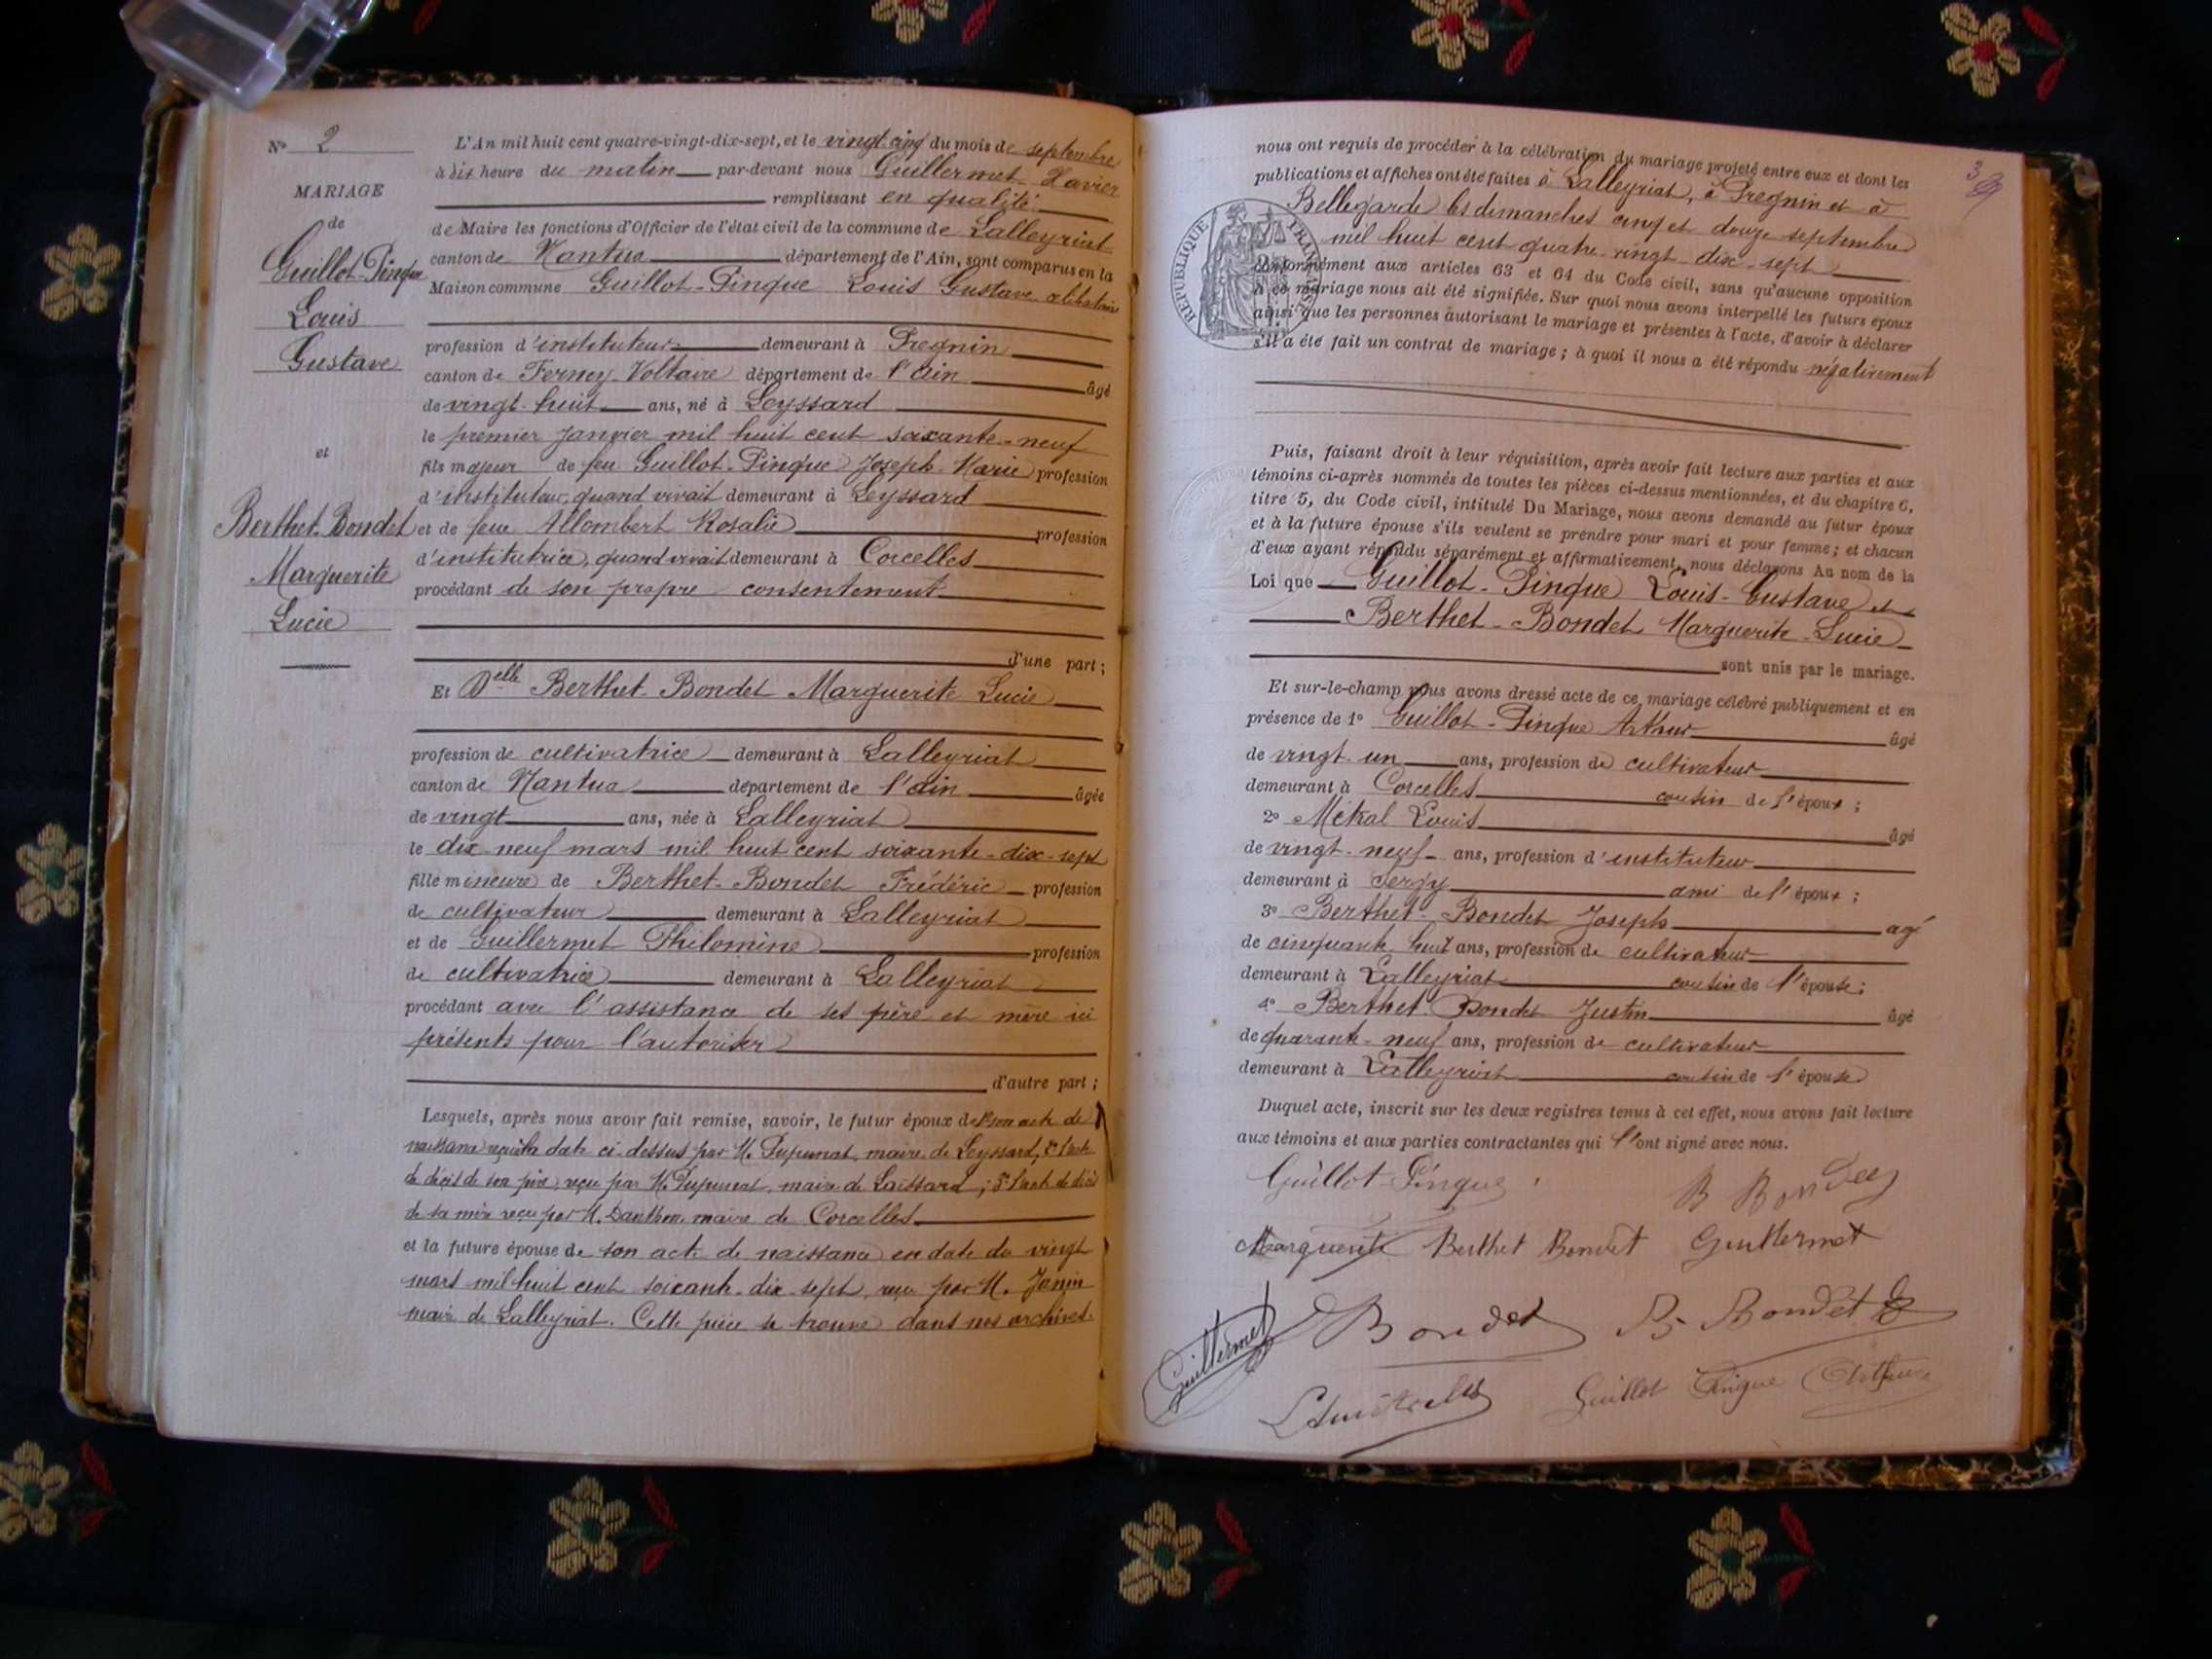 N° 2
MARIAGE
de
Guillot-Pingue
Louis
Gustave
et
Berthet-Bondet
Marguerite
Lucie
L'An mil huit cent quatre-vingt-dix-sept, et le vingt-cinq du mois de septembre
à dix heure du matin par-devant nous Guillermet Xavier
remplissant en qualité
de Maire les fonctions d'Officier de l'état civil de la commune de Lalleyriat
canton de Nantua département de l'Ain, sont comparus en la
Maison commune Guillot-Pingue Louis Gustave célibataire
profession d'instituteur demeurant à Pregnin
canton de Ferney-Voltaire département de l'Ain âgé
de vingt-huit ans, né à Leyssard
le premier Janvier mil huit cent soixante-neuf
fils majeur de feu Guillot-Pingue Joseph-Marie profession
d'instituteur, quand vivait demeurant à Leyssard
et de feue Allombert Rosalie profession
d'institutrice, quand vivait demeurant à Corcelles
procédant de son propre consentement
d'une part ;
Et Delle Berthet-Bondet Marguerite Lucie
profession de cultivatrice demeurant à Lalleyriat
canton de Nantua département de l'Ain âgée
de vingt ans, née à Lalleyriat
le dix-neuf mars mil huit cent soixante-dix-sept
fille mineure de Berthet-Bondet Frédéric profession
de cultivateur demeurant à Lalleyriat
et de Guillermet Philomine profession
de cultivatrice demeurant à Lalleyriat
procédant avec l'assistance de ses père et mère ici
présents pour l'autoriser
d'autre part ;
Lesquels, après nous avoir fait remise, savoir, le futur époux de 1° son acte de
naissance reçu à la date ci-dessus par M. Pupunat, maire de Leyssard, 2° l'acte
de décès de son père, reçu par M. Pupunat, maire de Laissard ; 3° l'acte de décès
de sa mère reçu par M. Danthon, maire de Corcelles
et la future épouse de son acte de naissance en date du vingt
mars mil huit cent soixante-dix-sept, reçu par M. Janin
maire de Lalleyriat. Cette pièce se trouve dans nos archives.
3
nous ont requis de procéder à la célébration du mariage projeté entre eux et dont les
publications et affiches ont été faites à Lalleyriat, à Pregnin et à
Bellegarde les dimanches cinq et douze septembre
mil huit cent quatre-vingt-dix-sept
RÉPUBLIQUE FRANÇAISE
conformément aux articles 63 et 64 du Code civil, sans qu'aucune opposition
à ce mariage nous ait été signifiée. Sur quoi nous avons interpellé les futurs époux
ainsi que les personnes autorisant le mariage et présentes à l'acte, d'avoir à déclarer
s'il a été fait un contrat de mariage ; à quoi il nous a été répondu négativement
Puis, faisant droit à leur réquisition, après avoir fait lecture aux parties et aux
témoins ci-après nommés de toutes les pièces ci-dessus mentionnées, et du chapitre 6,
titre 5, du Code civil, intitulé Du Mariage, nous avons demandé au futur époux
et à la future épouse s'ils veulent se prendre pour mari et pour femme ; et chacun
d'eux ayant répondu séparément et affirmativement, nous déclarons Au nom de la
Loi que Guillot-Pingue Louis-Gustave et
Berthet-Bondet Marguerite-Lucie
sont unis par le mariage.
Et sur-le-champ nous avons dressé acte de ce mariage célébré publiquement et en
présence de 1° Guillot-Pingue Arthur âgé
de vingt-un ans, profession de cultivateur
demeurant à Corcelles cousin de l'époux ;
2° Métral Louis âgé
de vingt-neuf ans, profession d'instituteur
demeurant à Sergy ami de l'époux ;
3° Berthet-Bondet Joseph agé
de cinquante-huit ans, profession de cultivateur
demeurant à Lalleyriat cousin de l'épouse ;
4° Berthet-Bondet Justin âgé
de quarante-neuf ans, profession de cultivateur
demeurant à Lalleyriat cousin de l'épouse
Duquel acte, inscrit sur les deux registres tenus à cet effet, nous avons fait lecture
aux témoins et aux parties contractantes qui l'ont signé avec nous.
Guillot-Pingue
B Bondet
Marguerite Berthet Bondet Guillermet
Guillermet
Bondet B. Bondet
Guillot Pingue Arthur